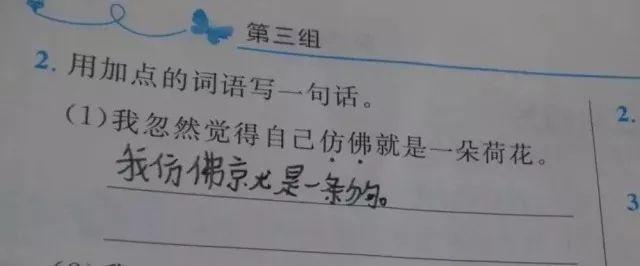 第三组
2. 用加点的词语写一句话。
(1)我忽然觉得自己仿佛就是一朵荷花。
我仿佛就是一条狗。
2.
3